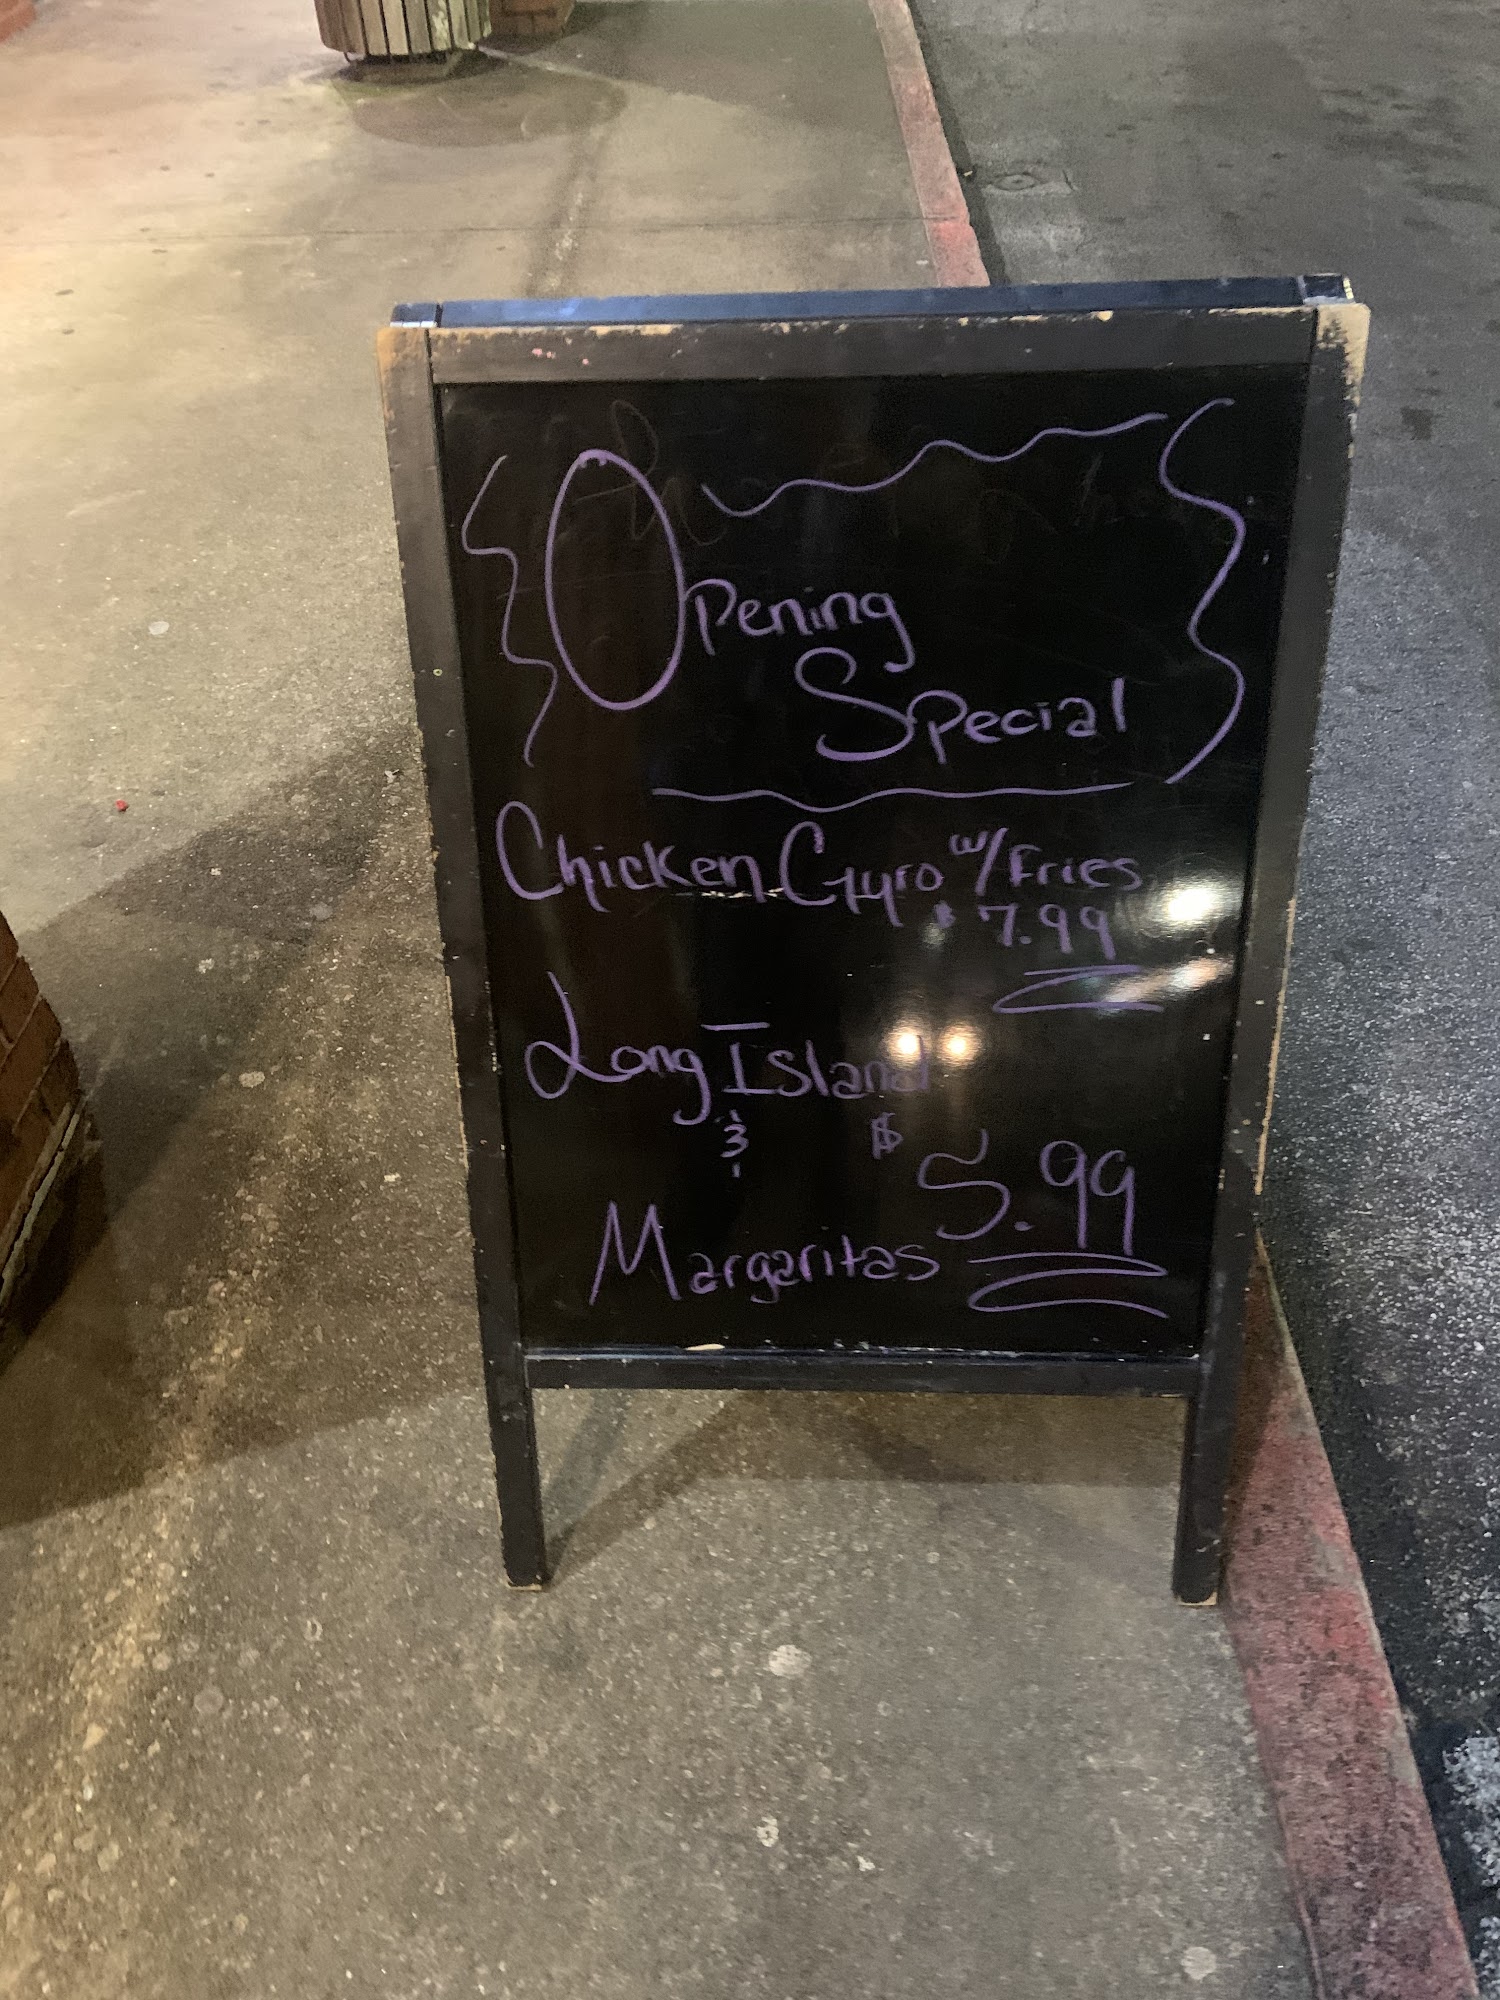 Opening
Special
Chicken Gyro w/Fries
$7.99
Long Island
&
$5.99
Margaritas